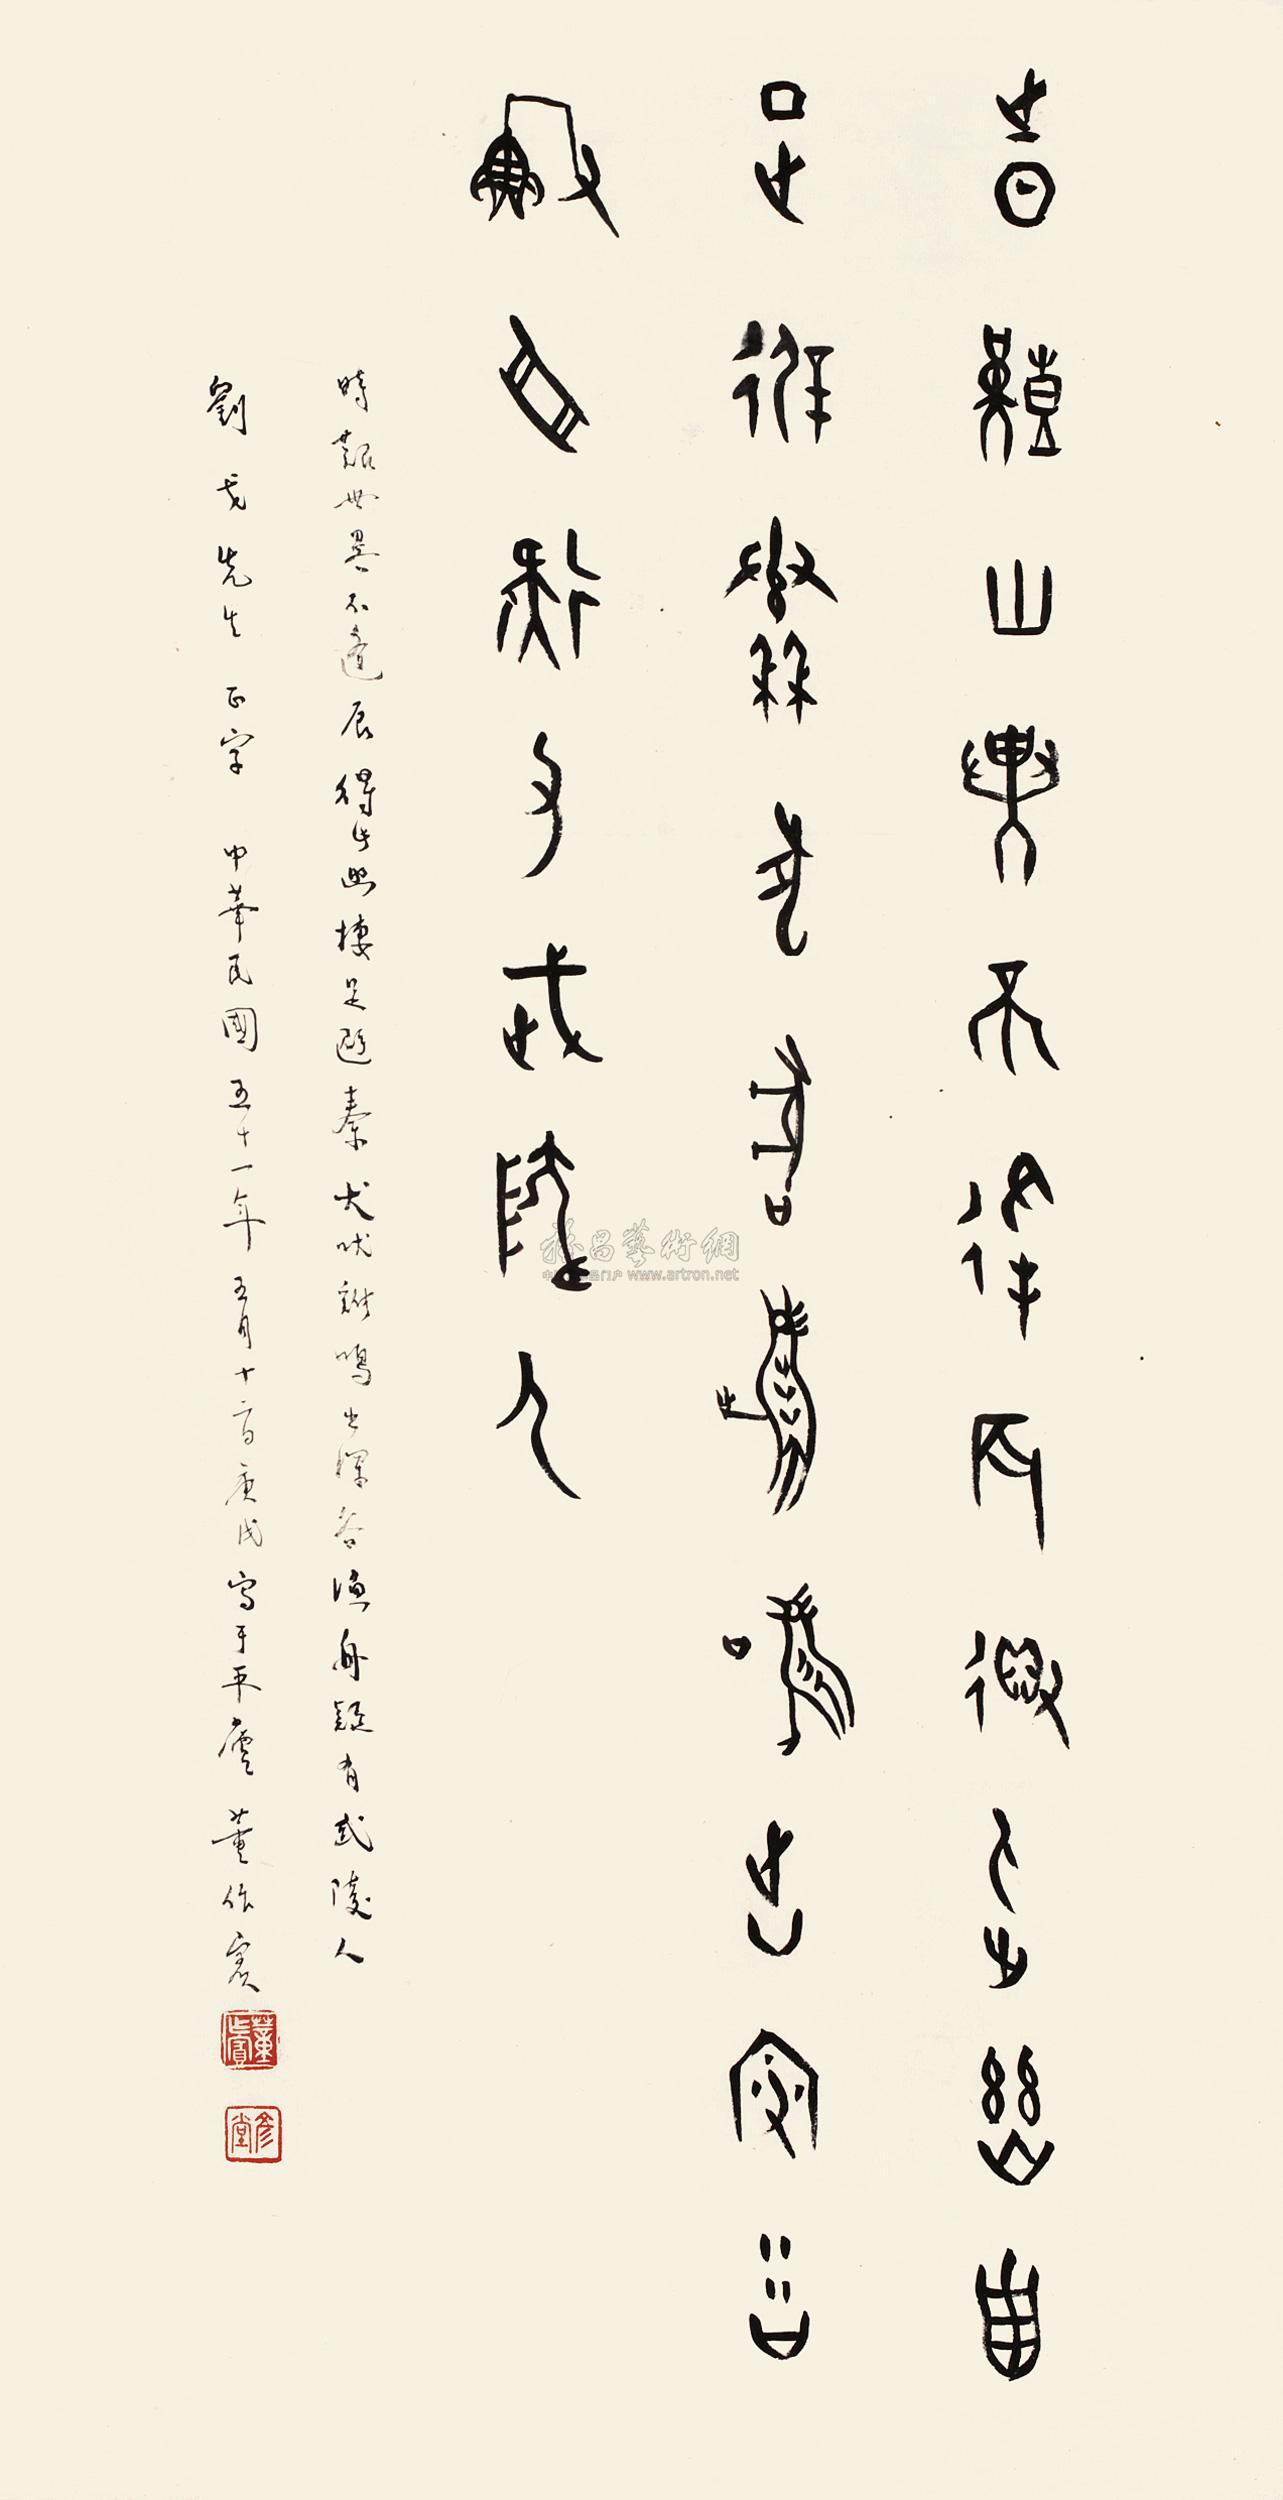 時艱世異不逢辰得此幽棲
足避秦犬吠雞鳴出深谷
漁舟疑有武陵人
時艱世異不逢辰得此幽棲足避秦犬吠雞鳴出深谷漁舟疑有武陵人
劉先生正字 中華民國五十一年五月十二日庚戌寫于平廬董作賓
董作賓
彥堂
雅昌藝術網
www.artron.net